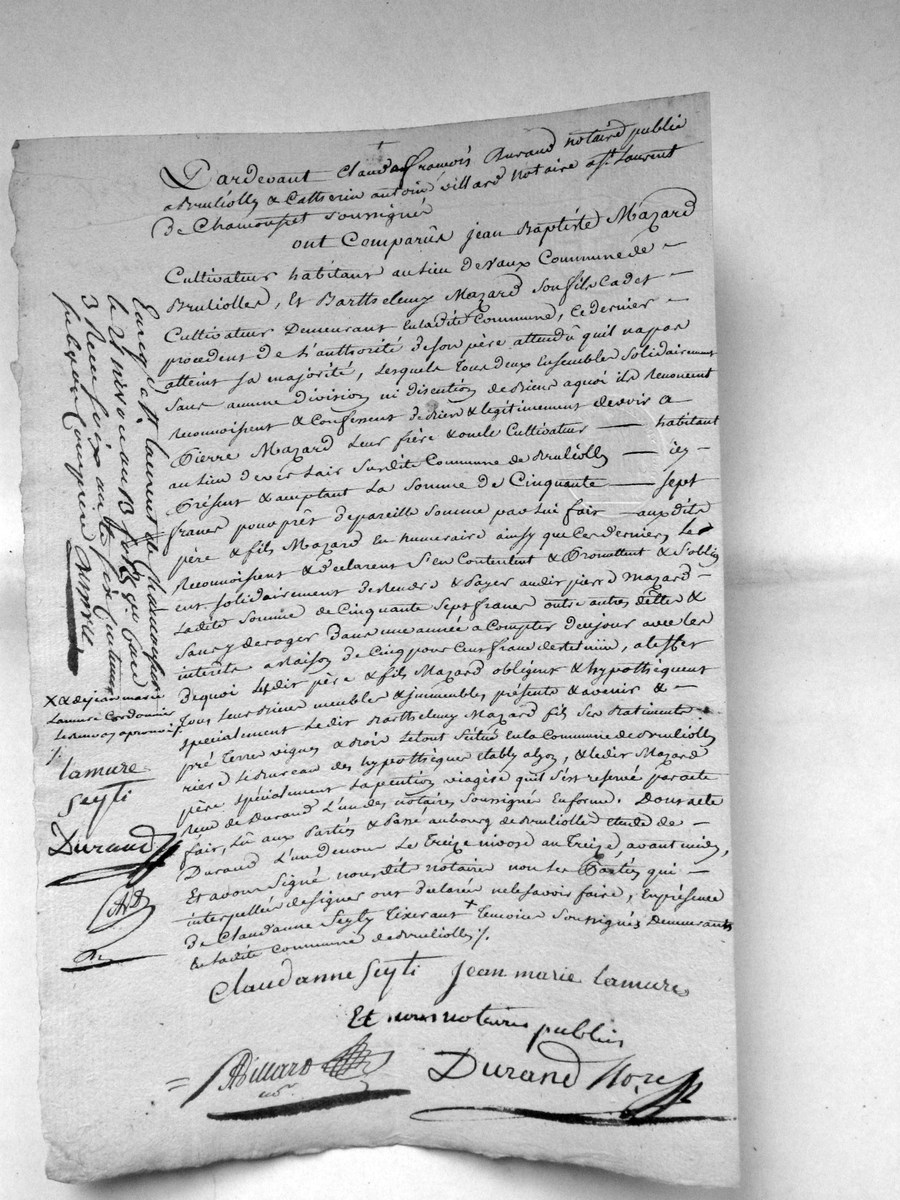 Pardevant Claude françois Durand notaire public
a Bruliolly & Catherin antoine villard Notaire a St. Laurent
de Chamousset soussigné
ont Comparûs jean Baptiste Mazard
Cultivateur habitant au lieu de vaux Commune de
Bruliolles, et Barthelemy Mazard son fils Cadet
Cultivateur Demeurant en ladite Commune, Ce dernier
procedent de L'authorité de son père attendû qu'il na pas
atteint sa majorité, Lesquels tous deux Ensembles Solidairement
Sans aucune Division ni discution de Biens aquoi ils Renoncent
Reconnoissent & Confessent de bien & legitimement devoir a
Pierre Mazard Leur frère & oncle Cultivateur habitant
au lieu de susdite Commune de Bruliolly icy
Présent & acceptant La Somme de Cinquante Sept
francs pour prês de pareille Somme par lui fait aux dits
père & fils Mazard En numeraire ainsy que Ces derniers Le
Reconnoissent & declarent S'en Contentent & Promettent & S'oblig
ent solidairement de rendre & Payer audit pierre Mazard
Ladite Somme de Cinquante Sept francs outre autres dette &
Sans y deroger Dans une année a Compter de ce jour avec les
interets a Raison de Cinq pour Cent francs de retenue, a leffet
de quoi Lesdit père & fils Mazard obligent & hypothèquent
Tous Leurs Biens meubles & immeubles présents & avenir &
spécialement Ledit Barthelemy Mazard fils Ses Batiments
pré Terre vignes & bois Le tout Scitué en la Commune de Bruliolly
rière Le Bureau des hypothèques etably alyon, & ledit Mazard
père spécialement La pention viagère qu'il s'est reservé par acte
Reçu de Durand L'un des notaires Soussignés En forme. Dont acte
fait, Lû aux Parties & Passé au bourg de Bruliolle etude de
Durand L'un de nous Le Treize nivose an Treize, avant midy,
Et avons Signé nousdit notaire non les Parties qui
interpellées de signer ont declarée ne le savoir faire, En présence
de Claudanne Seyty Tixerant + Temoins Soussignés Demeurants
en Ladite Commune de Bruliolly ./.
Claudanne Seyti Jean marie Lamure
Et nous notaires publics
Villard
nore
Durand Nore
Enreg.é a St. Laurent de Chamousset
le 21 nivose an 13 f.o
3 Reçu
subvention Comprise
X & de jean marie
Lamure Cordonnier
Le renvoy aprouvé ./.
Lamure
Seyti
Durand